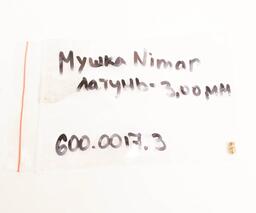 Мушка Nimar
латунь-3,00мм
600.0017.3